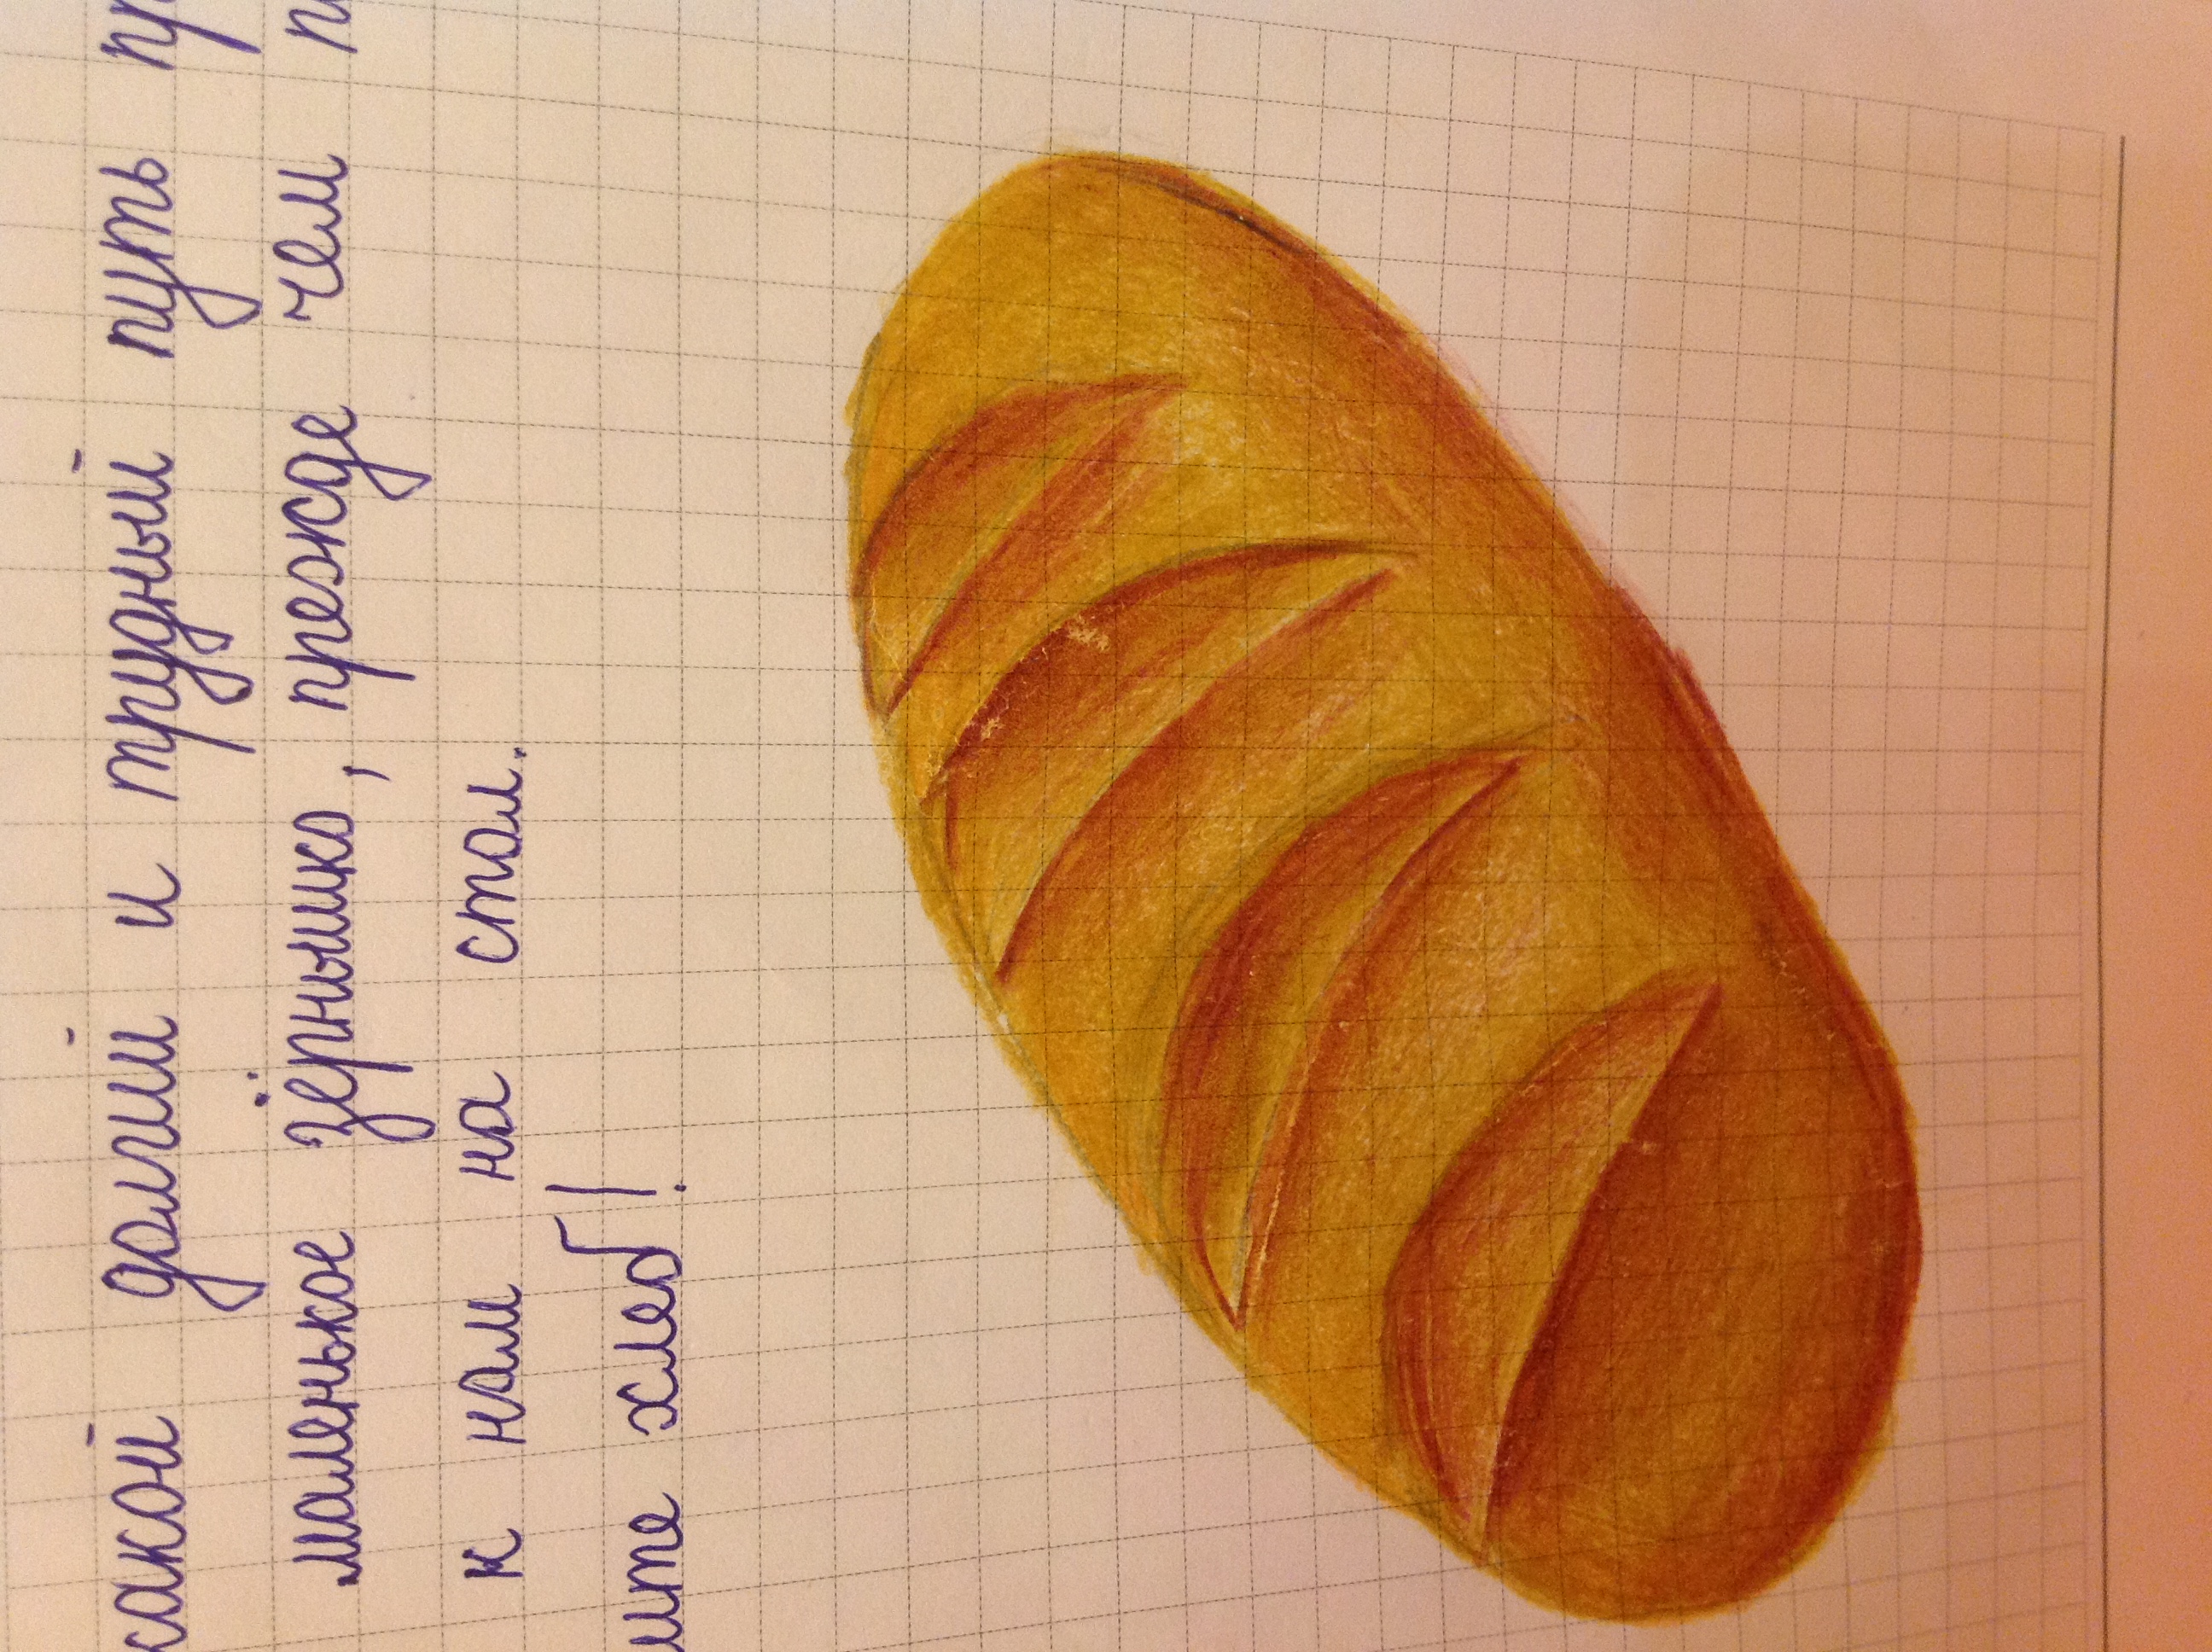 какой долгий и трудный путь пр
маленькое зёрнышко, прежде чем п
к нам на стол.
ите хлеб!